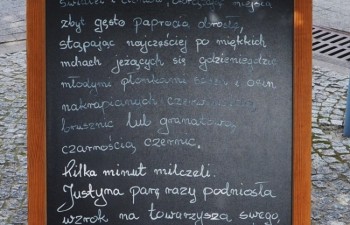 zbyt gęsto paprocią drogę,
stąpając najczęściej po miękkich
mchach jeżących się gdzieniegdzie
młodymi płonkami
nakrapianych
brusznic lub granatową
czarnością czernic.
Kilka minut milczeli.
Justyna parę razy podniosła
wzrok na towarzysza swego,